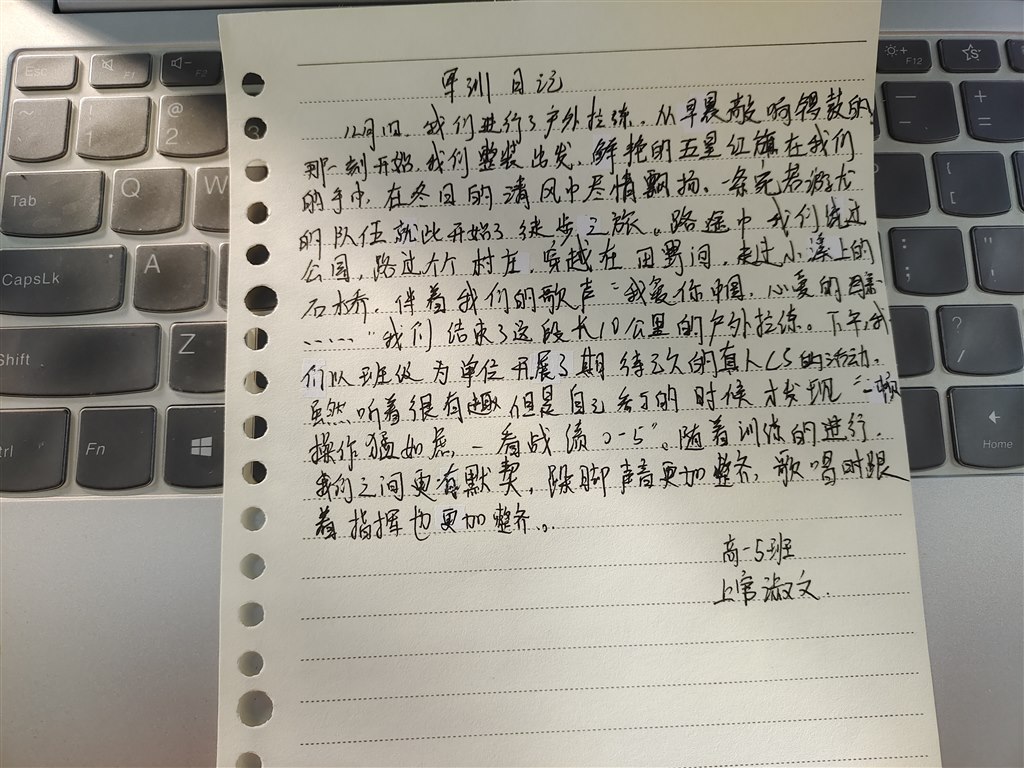 军训日记
12月1日,我们进行了户外拉练。从早晨敲响锣鼓的
那一刻开始,我们整装出发,鲜艳的五星红旗在我们
的手中,在冬日的清风中尽情飘扬。一条宛若游龙
的队伍就此开始了徒步之旅。路途中我们绕过
公园,路过个个村庄,穿越在田野间,走过小溪上的
石桥,伴着我们的歌声“我爱你中国,心爱的
……”我们结束了这段长10公里的户外拉练。下午,我
们以班级为单位开展了期待已久的真人CS的活动。
虽然听着很有趣但是自己季了的时候才发现“一顿
操作猛如虎,一看战绩0-5”。随着训练的进行,
我们之间更有默契,跺脚声音更加整齐,歌唱时跟
着指挥也更加整齐。
高一5班
上官淑文
Esc
F1
F2
F12
~
`
!
1
@
2
3
Tab
Q
W
CapsLk
A
Shift
Z
Ctrl
Fn
{
[
:
;
"
'
?
/
Home